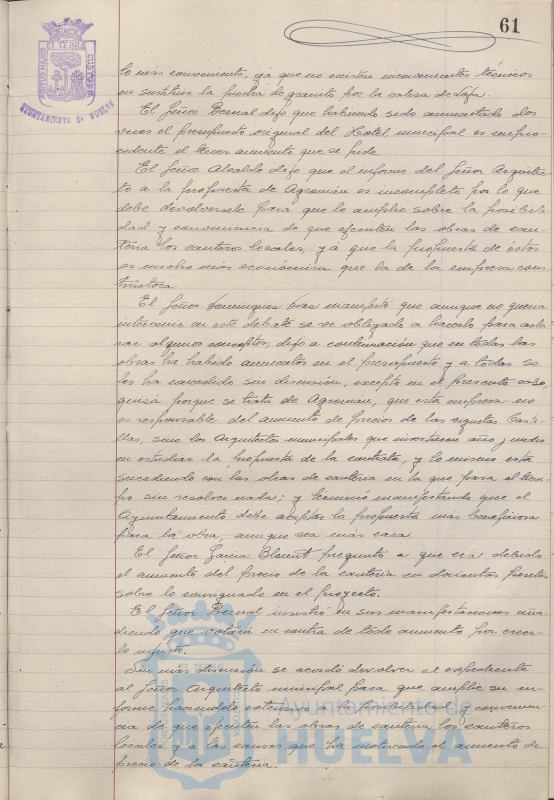 61
PORTUS MARIS ET TERRAE CUSTODIA
AYUNTAMIENTO DE HUELVA
lo más conveniente, ya que no existen inconvenientes técnicos
en sustituir la piedra de granito por la caliza de
El Señor Bernal dijo que habiendo sido aumentado dos
veces el presupuesto original del Hotel municipal es impro-
cedente el tercer aumento que se pide.
El Señor Alcalde dijo que el informe del Señor Arquitec-
to a la propuesta de Agromán es incompleto por lo que
debe devolversele para que lo amplie sobre la posibili-
dad y conveniencia de que ejecuten las obras de can-
tería los canteros locales, ya que la propuesta de éstos
es mucho más económica que la de la empresa cons-
tructora.
El Señor Dominguez manifestó que aunque no queria
intervenir en este debate se ve obligado a hacerlo para acla-
rar algunos conceptos; dijo a continuación que en todas las
obras ha habido aumentos en el presupuesto y a todas se
les ha concedido sin discusión, excepto en el presente caso
quizá porque se trata de Agromán, que esta empresa no
es responsable del aumento de precios de las viguetas Cas-
llas, sino los Arquitectos municipales que invirtieron año y medio
en estudiar la propuesta de la contrata, y lo mismo está
sucediendo con las obras de cantería en la que pasa el tiem-
po sin resolver nada; y terminó manifestando que el
Ayuntamiento debe aceptar la propuesta más beneficiosa
para la obra, aunque sea más cara.
El Señor Garcia preguntó a que era debido
el aumento del precio de la cantería en docientas pesetas
sobre lo consignado en el proyecto.
El Señor Bernal insistió en sus manifestaciones aña-
diendo que votará en contra de todo aumento por creer-
lo injusto.
Sin más discusión se acordó devolver el expediente
al Señor Arquitecto municipal para que amplie su in-
forme haciendolo extensivo a la posibilidad y convenien-
cia de que ejecuten las obras de cantería los canteros
locales y a las causas que ha motivado el aumento de
precio de la cantería.
Ayuntamiento de
HUELVA